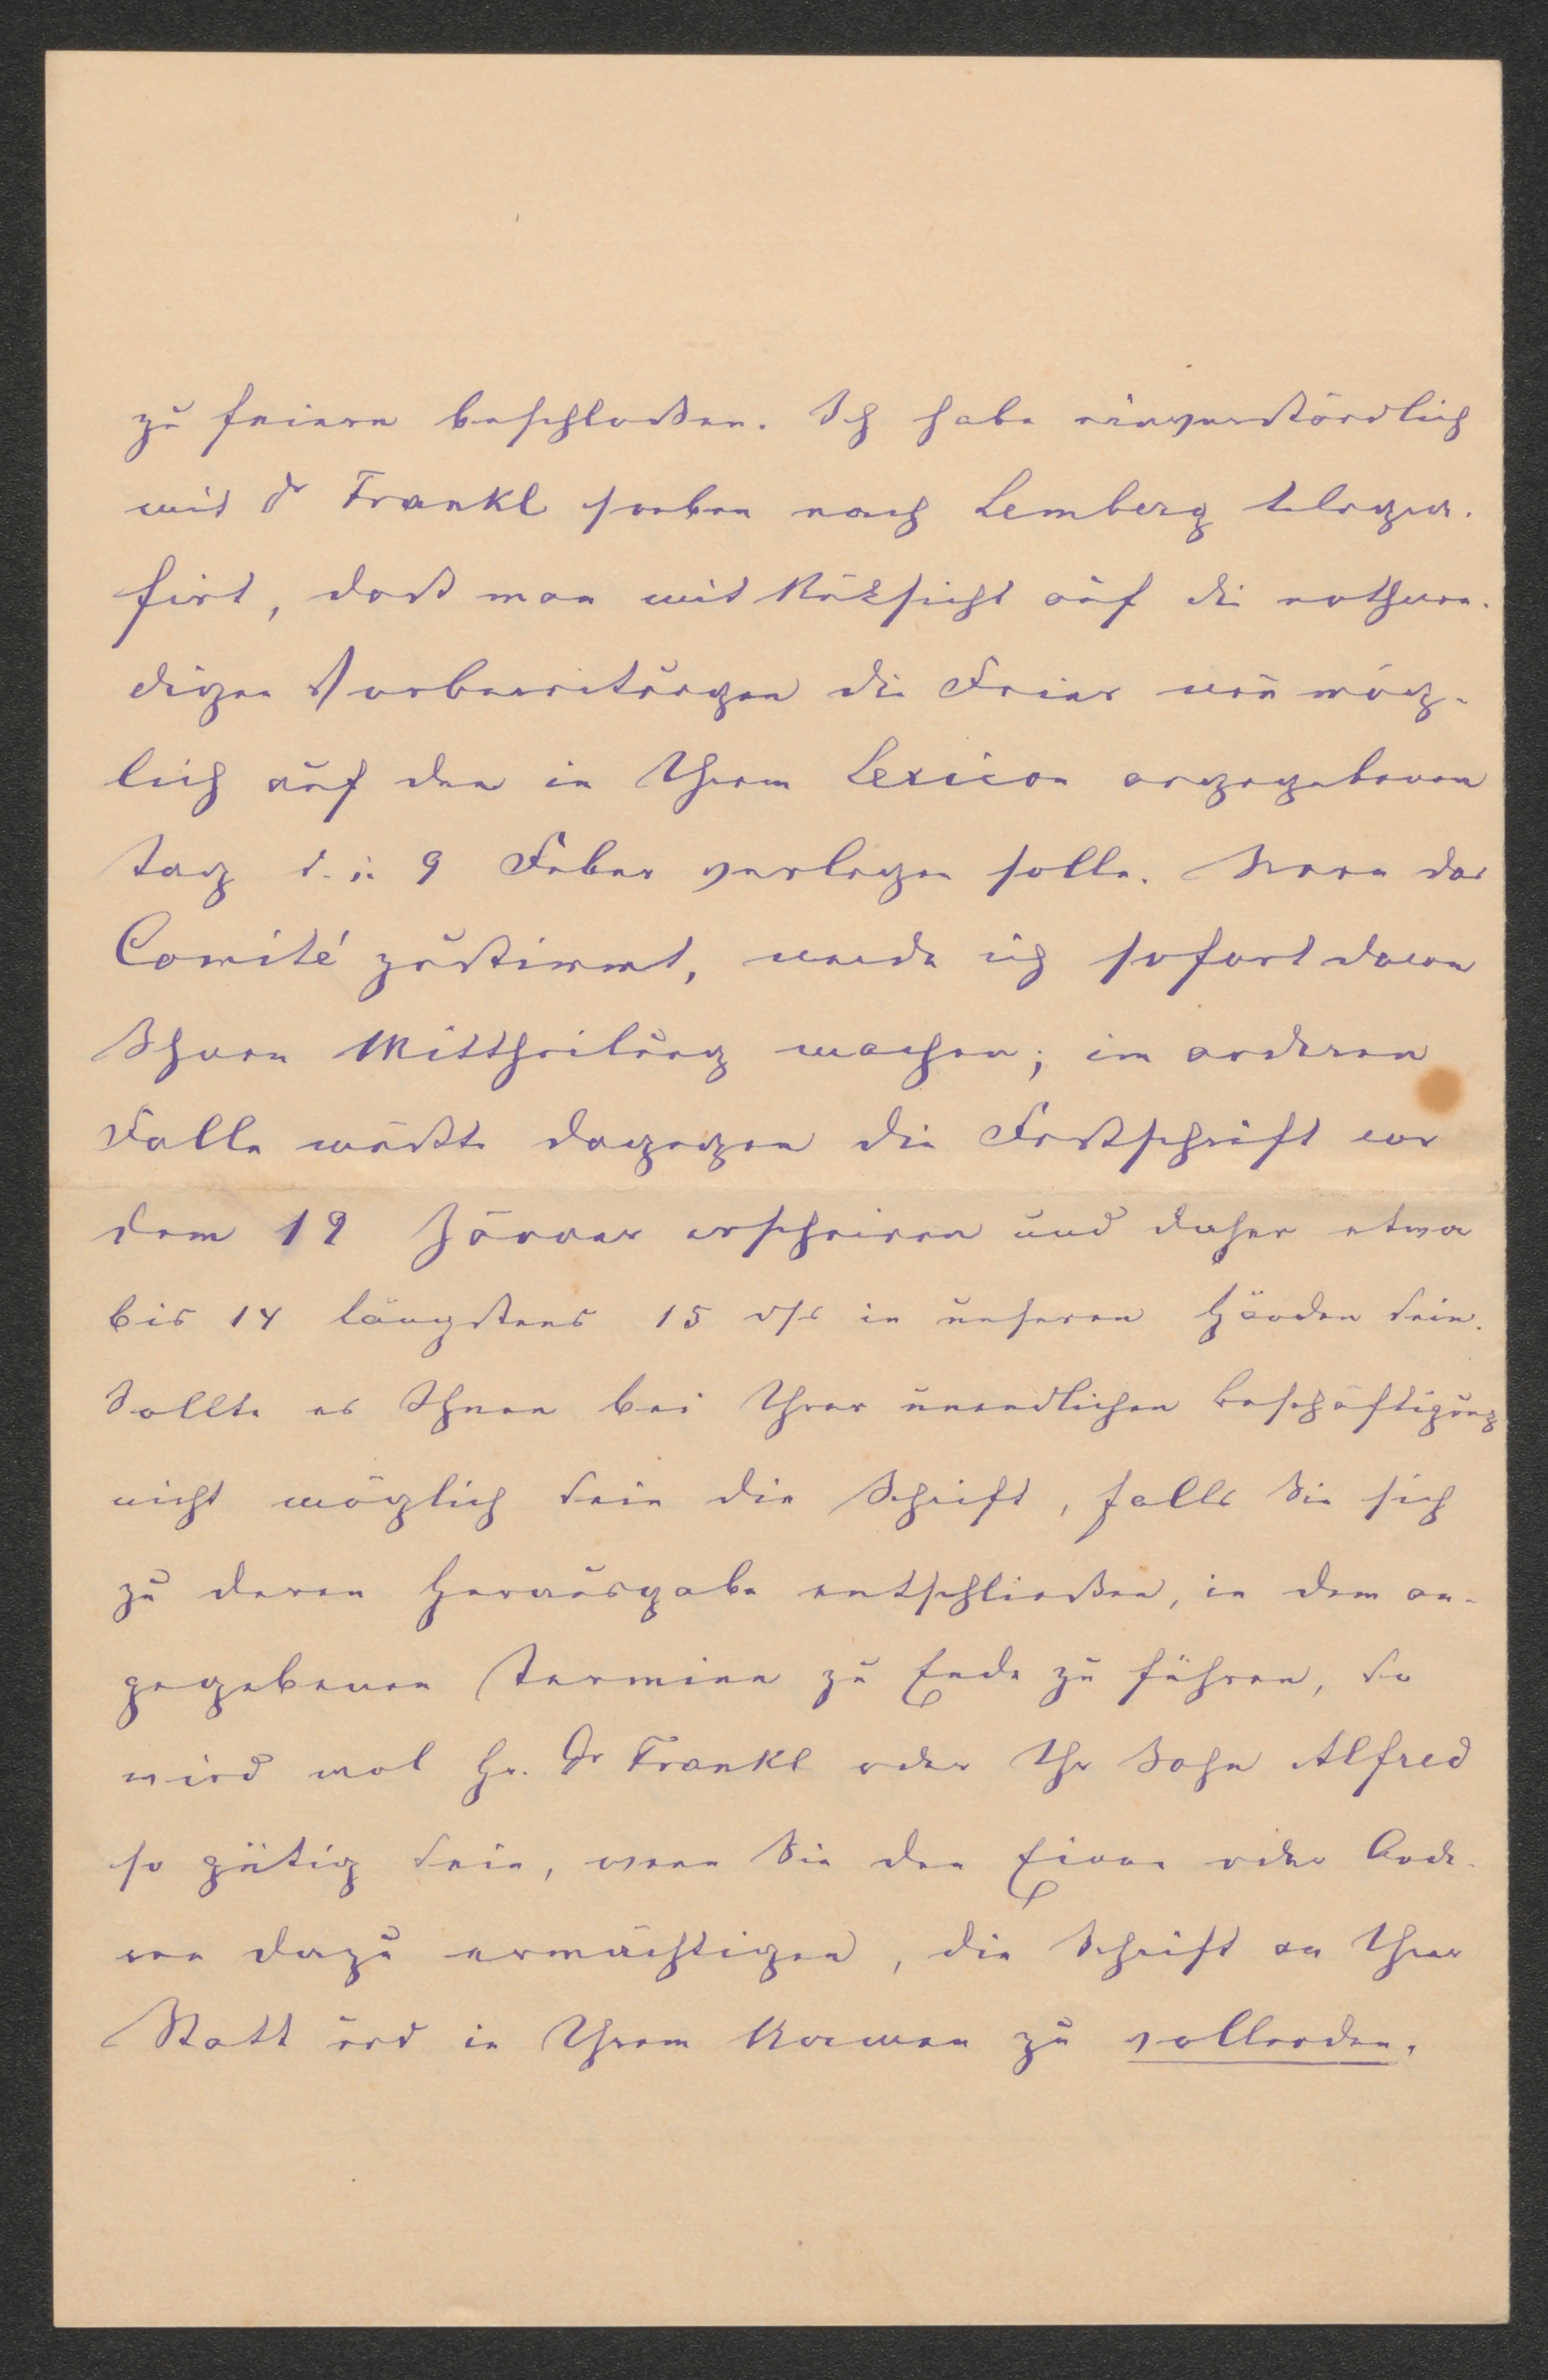 zu feiern beschloßen. Ich habe einverständlich
mit Dr Frankl soeben nach Lemberg telegra-
firt, daß man mit Rüksicht auf die nothwen-
digen Vorbereitungen die Feier womög-
lich auf den in Ihrem Lexicon angegebenen
Tag d. i. 9 Feber verlegen solle. Wenn das
Comité zustimmt, werde ich sofort davon
Ihnen Mittheilung machen; im anderen
Falle müßte dagegen die Festschrift vor
dem 19 Jänner erscheinen und daher etwa
bis 14 längstens 15 dſs in unseren Händen sein.
Sollte es Ihnen bei Ihrer unendlichen Beschäftigung
nicht möglich sein die Schrift, falls Sie sich
zu deren Herausgabe entschließen, in dem an-
gegebenen Termine zu Ende zu führen, so
wird wol Hr. Dr Frankl oder Ihr Sohn Alfred
so gütig sein, wenn Sie den Einen oder Ande-
ren dazu ermächtigen, die Schrift an Ihrer
Statt und in Ihrem Namen zu vollenden.